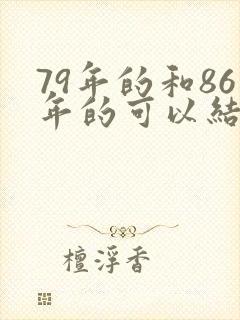 79年的和86
年的可以結
檀浮香